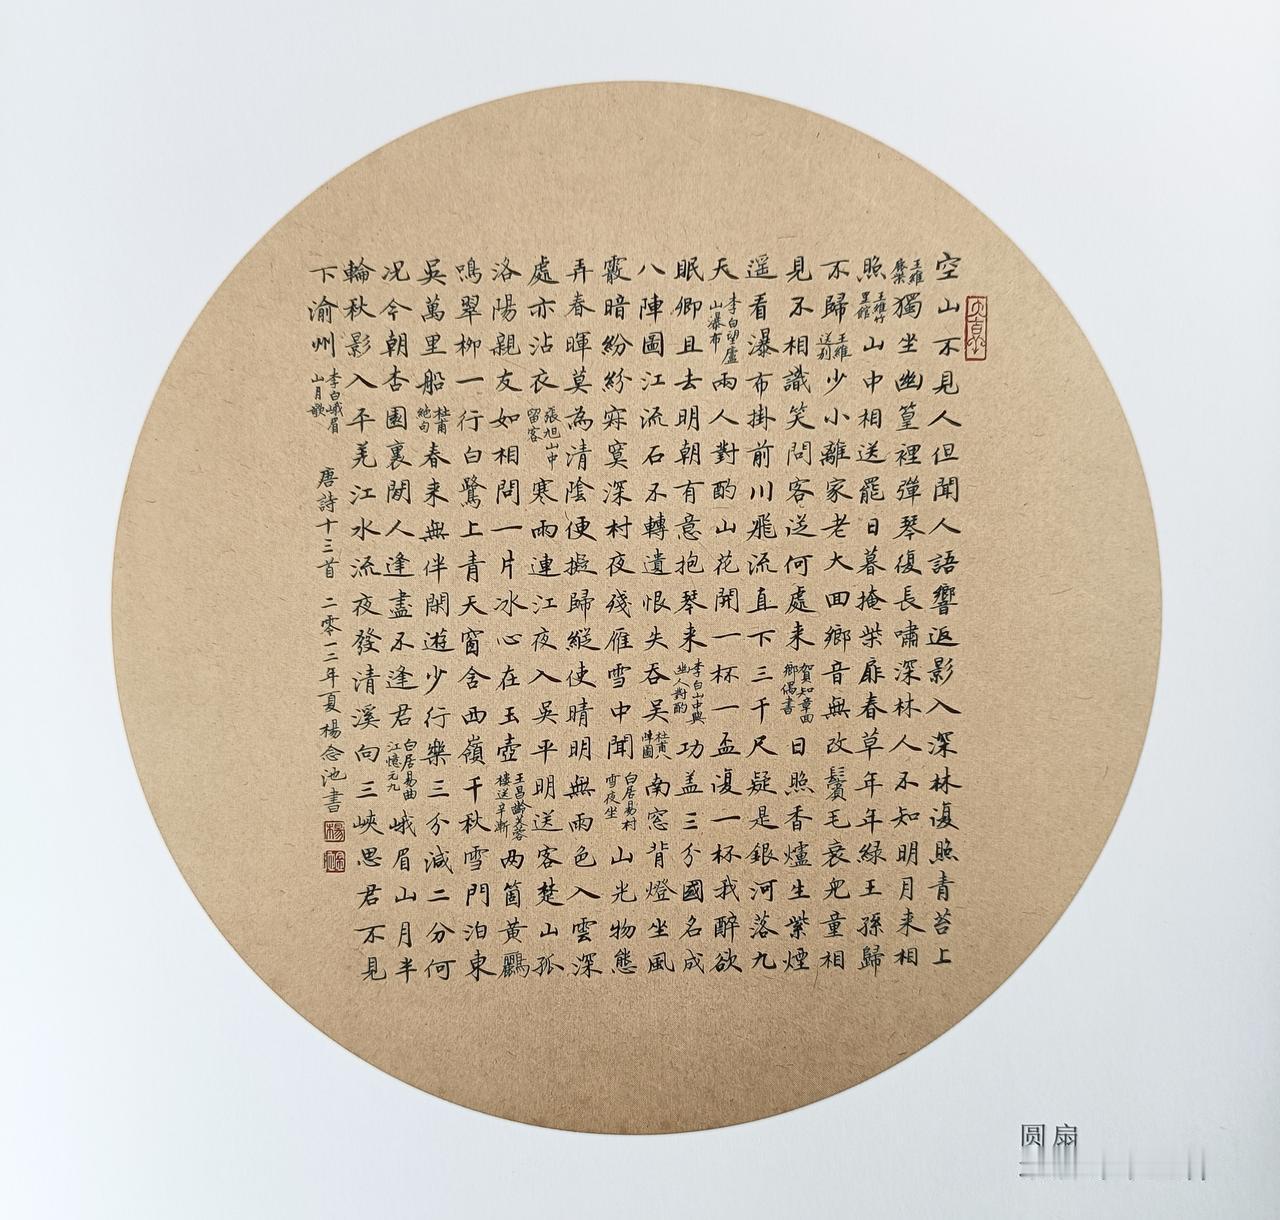 空山不見人但聞人語響返影入深林復照青苔上
王維鹿柴獨坐幽篁裡彈琴復長嘯深林人不知明月来相
照王維竹里館山中相送罷日暮掩柴扉春草年年綠王孫歸
不歸王維送别少小離家老大回鄉音無改鬢毛衰兒童相
見不相識笑問客從何處来賀知章回鄉偶書日照香爐生紫煙
遥看瀑布掛前川飛流直下三千尺疑是銀河落九
天李白望廬山瀑布兩人對酌山花開一杯一盃復一杯我醉欲
眠卿且去明朝有意抱琴来李白山中與幽人對酌功盖三分國名成
八陣圖江流石不轉遺恨失吞吴杜甫八陣圖南窓背燈坐風
霰暗紛紛寂寞深村夜殘雁雪中聞白居易村雪夜坐山光物態
弄春暉莫為清陰便擬歸縱使晴明無雨色入雲深
處亦沾衣張旭山中留客寒雨連江夜入吴平明送客楚山孤
洛陽親友如相問一片冰心在玉壺王昌齡芙蓉樓送辛漸两箇黄鸝
鳴翠柳一行白鷺上青天窗含西嶺千秋雪門泊東
吳萬里船杜甫絶句春来無伴閑遊少行樂三分減二分何
况今朝杏園裏閑人逢盡不逢君白居易曲江憶元九峨眉山月半
輪秋影入平羌江水流夜發清溪向三峽思君不見
下渝州李白峨眉山月歌 唐詩十三首 二零一二年夏楊念池書
圆扇